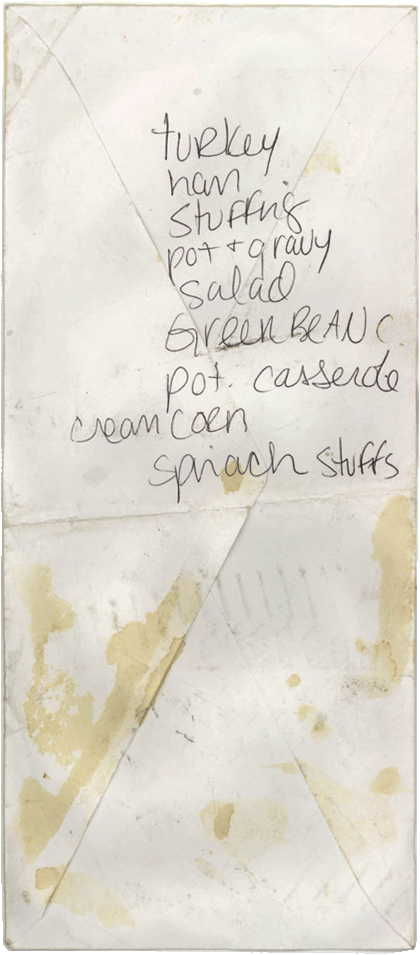 turkey
ham
stuffing
pot + gravy
salad
Green BeAN C
pot. casserole
cream corn
spinach stuffs